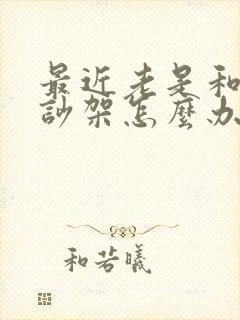 最近老是和
訬架怎麼办
和若曦